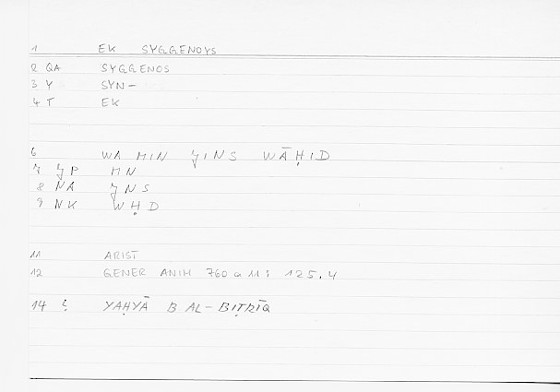 1 EK SYGGENOYS
2 QA SYGGENOS
3 Y SYN-
4 T EK
6 WA MIN ǦINS WĀḤID
7 ǦP MN
8 NA ǦNS
9 NK WḤD
11 ARIST
12 GENER ANIM 760 a 11 : 125,4
14 YAḤYĀ B AL-BIṬRĪQ